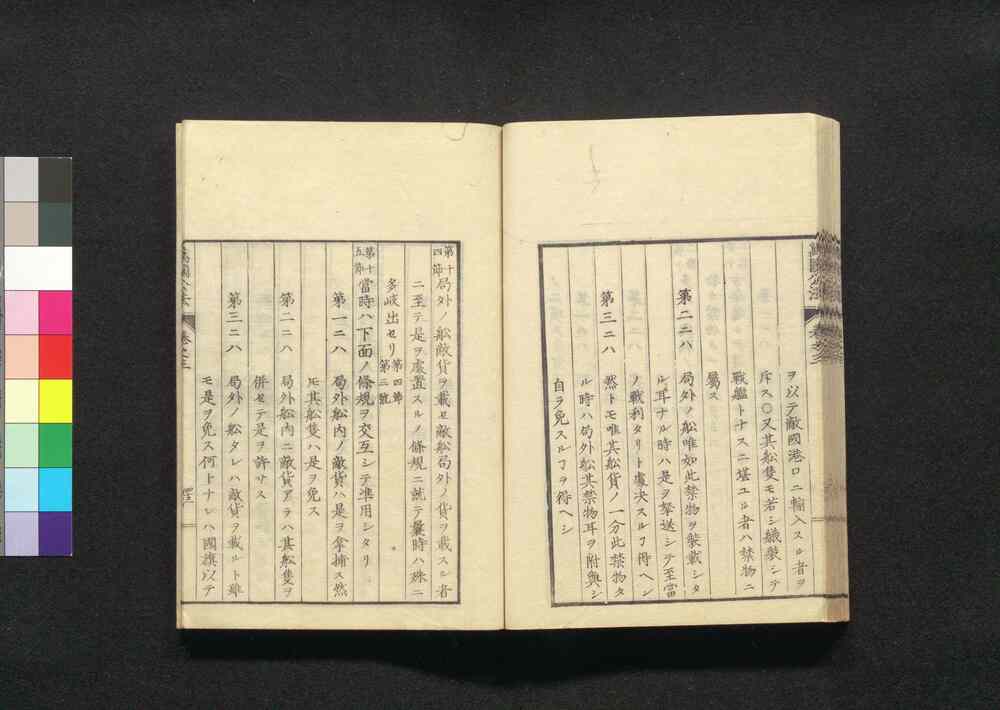 萬國公法
ヲ以テ敵國港口ニ輸入スル者ヲ
斥ス〇又其舩隻モ若シ艤装シテ
戦艦トナスニ堪ユル者ハ禁物ニ
屬ス
第二ニハ 局外ノ舩唯如此禁物ヲ裝載シタ
ル耳ナル時ハ是ヲ拏送シテ至當
ノ戰利タリト處决スルヿ得ヘシ
第三ニハ 然トモ唯其舩貨ノ一分此禁物タ
ル時ハ局外舩其禁物耳ヲ附與シ
自ラ免スルヿヲ得ヘシ
第十四節 局外ノ舩敵貨ヲ載セ敵舩局外ノ貨ヲ載スル者
ニ至テ是ヲ處置スルノ條規ニ就テ曩時ハ殊ニ
多岐出セリ 第四節第三號
第十五節 當時ハ下面ノ條規ヲ交互シテ準用シタリ
第一ニハ 局外舩内ノ敵貨ハ是ヲ拿捕ス然
ㇾ𪜈其舩隻ハ是ヲ免ス
第二ニハ 局外舩内ニ敵貨アラハ其舩隻ヲ
併セテ是ヲ許サス
第三ニハ 局外ノ舩タレハ敵貨ヲ載ルト雖
モ是ヲ免ス何トナレハ國旗以テ
萬國公法 卷之三